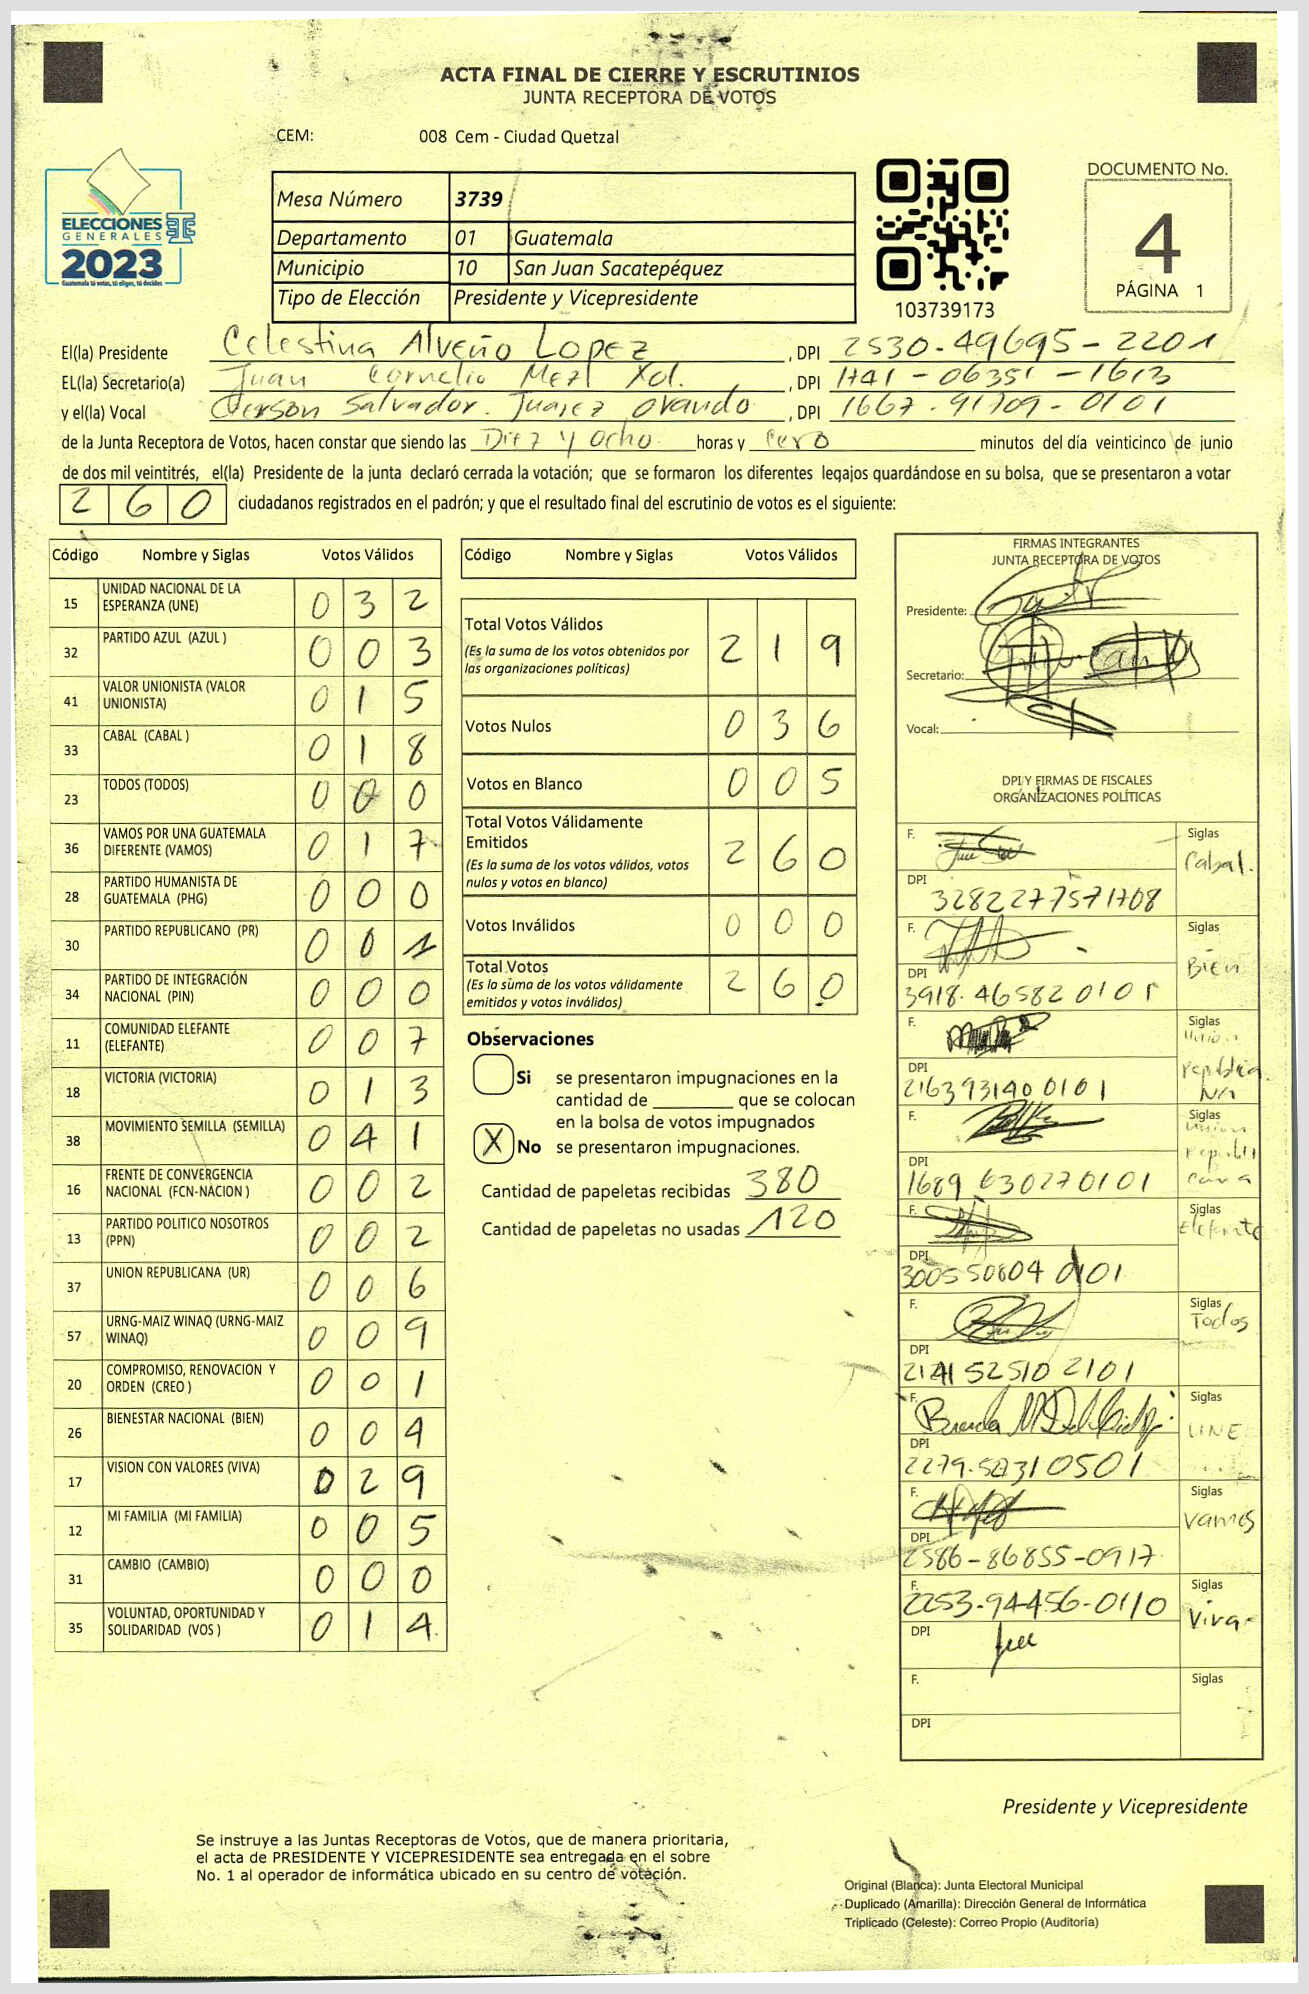 ACTA FINAL DE CIERRE Y ESCRUTINIOS
JUNTA RECEPTORA DE VOTOS
CEM: 008 Cem - Ciudad Quetzal
ELECCIONES
GENERALES
2023
Guatemala tú votas, tú eliges, tú decides
Mesa Número 3739
Departamento 01 Guatemala
Municipio 10 San Juan Sacatepéquez
Tipo de Elección Presidente y Vicepresidente
103739173
DOCUMENTO No.
4
PÁGINA 1
El(la) Presidente Celestina Alveño Lopez, DPI 2530-49695-2201
EL(la) Secretario(a) Juan Cornelio Mezl Xol., DPI 1741-06351-1613
y el(la) Vocal Gerson Salvador. Juarez Ovando, DPI 1667-91709-0101
de la Junta Receptora de Votos, hacen constar que siendo las Diez y Ocho horas y cero minutos del día veinticinco de junio
de dos mil veintitrés, el(la) Presidente de la junta declaró cerrada la votación; que se formaron los diferentes legajos guardándose en su bolsa, que se presentaron a votar
260 ciudadanos registrados en el padrón; y que el resultado final del escrutinio de votos es el siguiente:
Código Nombre y Siglas Votos Válidos
15 UNIDAD NACIONAL DE LA ESPERANZA (UNE) 0 3 2
32 PARTIDO AZUL (AZUL ) 0 0 3
41 VALOR UNIONISTA (VALOR UNIONISTA) 0 1 5
33 CABAL (CABAL ) 0 1 8
23 TODOS (TODOS) 0 0 0
36 VAMOS POR UNA GUATEMALA DIFERENTE (VAMOS) 0 1 7
28 PARTIDO HUMANISTA DE GUATEMALA (PHG) 0 0 0
30 PARTIDO REPUBLICANO (PR) 0 0 1
34 PARTIDO DE INTEGRACIÓN NACIONAL (PIN) 0 0 0
11 COMUNIDAD ELEFANTE (ELEFANTE) 0 0 7
18 VICTORIA (VICTORIA) 0 1 3
38 MOVIMIENTO SEMILLA (SEMILLA) 0 4 1
16 FRENTE DE CONVERGENCIA NACIONAL (FCN-NACION ) 0 0 2
13 PARTIDO POLITICO NOSOTROS (PPN) 0 0 2
37 UNION REPUBLICANA (UR) 0 0 6
57 URNG-MAIZ WINAQ (URNG-MAIZ WINAQ) 0 0 9
20 COMPROMISO, RENOVACION Y ORDEN (CREO ) 0 0 1
26 BIENESTAR NACIONAL (BIEN) 0 0 4
17 VISION CON VALORES (VIVA) 0 2 9
12 MI FAMILIA (MI FAMILIA) 0 0 5
31 CAMBIO (CAMBIO) 0 0 0
35 VOLUNTAD, OPORTUNIDAD Y SOLIDARIDAD (VOS ) 0 1 4
Código Nombre y Siglas Votos Válidos
Total Votos Válidos 2 1 9
(Es la suma de los votos obtenidos por
las organizaciones políticas)
Votos Nulos 0 3 6
Votos en Blanco 0 0 5
Total Votos Válidamente
Emitidos 2 6 0
(Es la suma de los votos válidos, votos
nulos y votos en blanco)
Votos Inválidos 0 0 0
Total Votos 2 6 0
(Es la suma de los votos válidamente
emitidos y votos inválidos)
Observaciones
Si se presentaron impugnaciones en la
cantidad de ________ que se colocan
en la bolsa de votos impugnados
X No se presentaron impugnaciones.
Cantidad de papeletas recibidas 380
Cantidad de papeletas no usadas 120
FIRMAS INTEGRANTES
JUNTA RECEPTORA DE VOTOS
Presidente:
Secretario:
Vocal:
DPI Y FIRMAS DE FISCALES
ORGANIZACIONES POLÍTICAS
F. Siglas Cabal.
DPI 3282277571708
F. Siglas Bien
DPI 3918-465820101
F. Siglas Union republica NA
DPI 2163931400101
F. Siglas Union republi cana
DPI 1689 630270101
F. Siglas Elefante
DPI 300550804 0101
F. Siglas Todos
DPI 2141 52510 2101
F. Siglas UNE
DPI 2279-50310501
F. Siglas Vamos
DPI 2586-86855-0917
F. 2253-94456-0110 Siglas Viva
DPI
F. Siglas
DPI
Presidente y Vicepresidente
Se instruye a las Juntas Receptoras de Votos, que de manera prioritaria,
el acta de PRESIDENTE Y VICEPRESIDENTE sea entregada en el sobre
No. 1 al operador de informática ubicado en su centro de votación.
Original (Blanca): Junta Electoral Municipal
Duplicado (Amarilla): Dirección General de Informática
Triplicado (Celeste): Correo Propio (Auditoría)